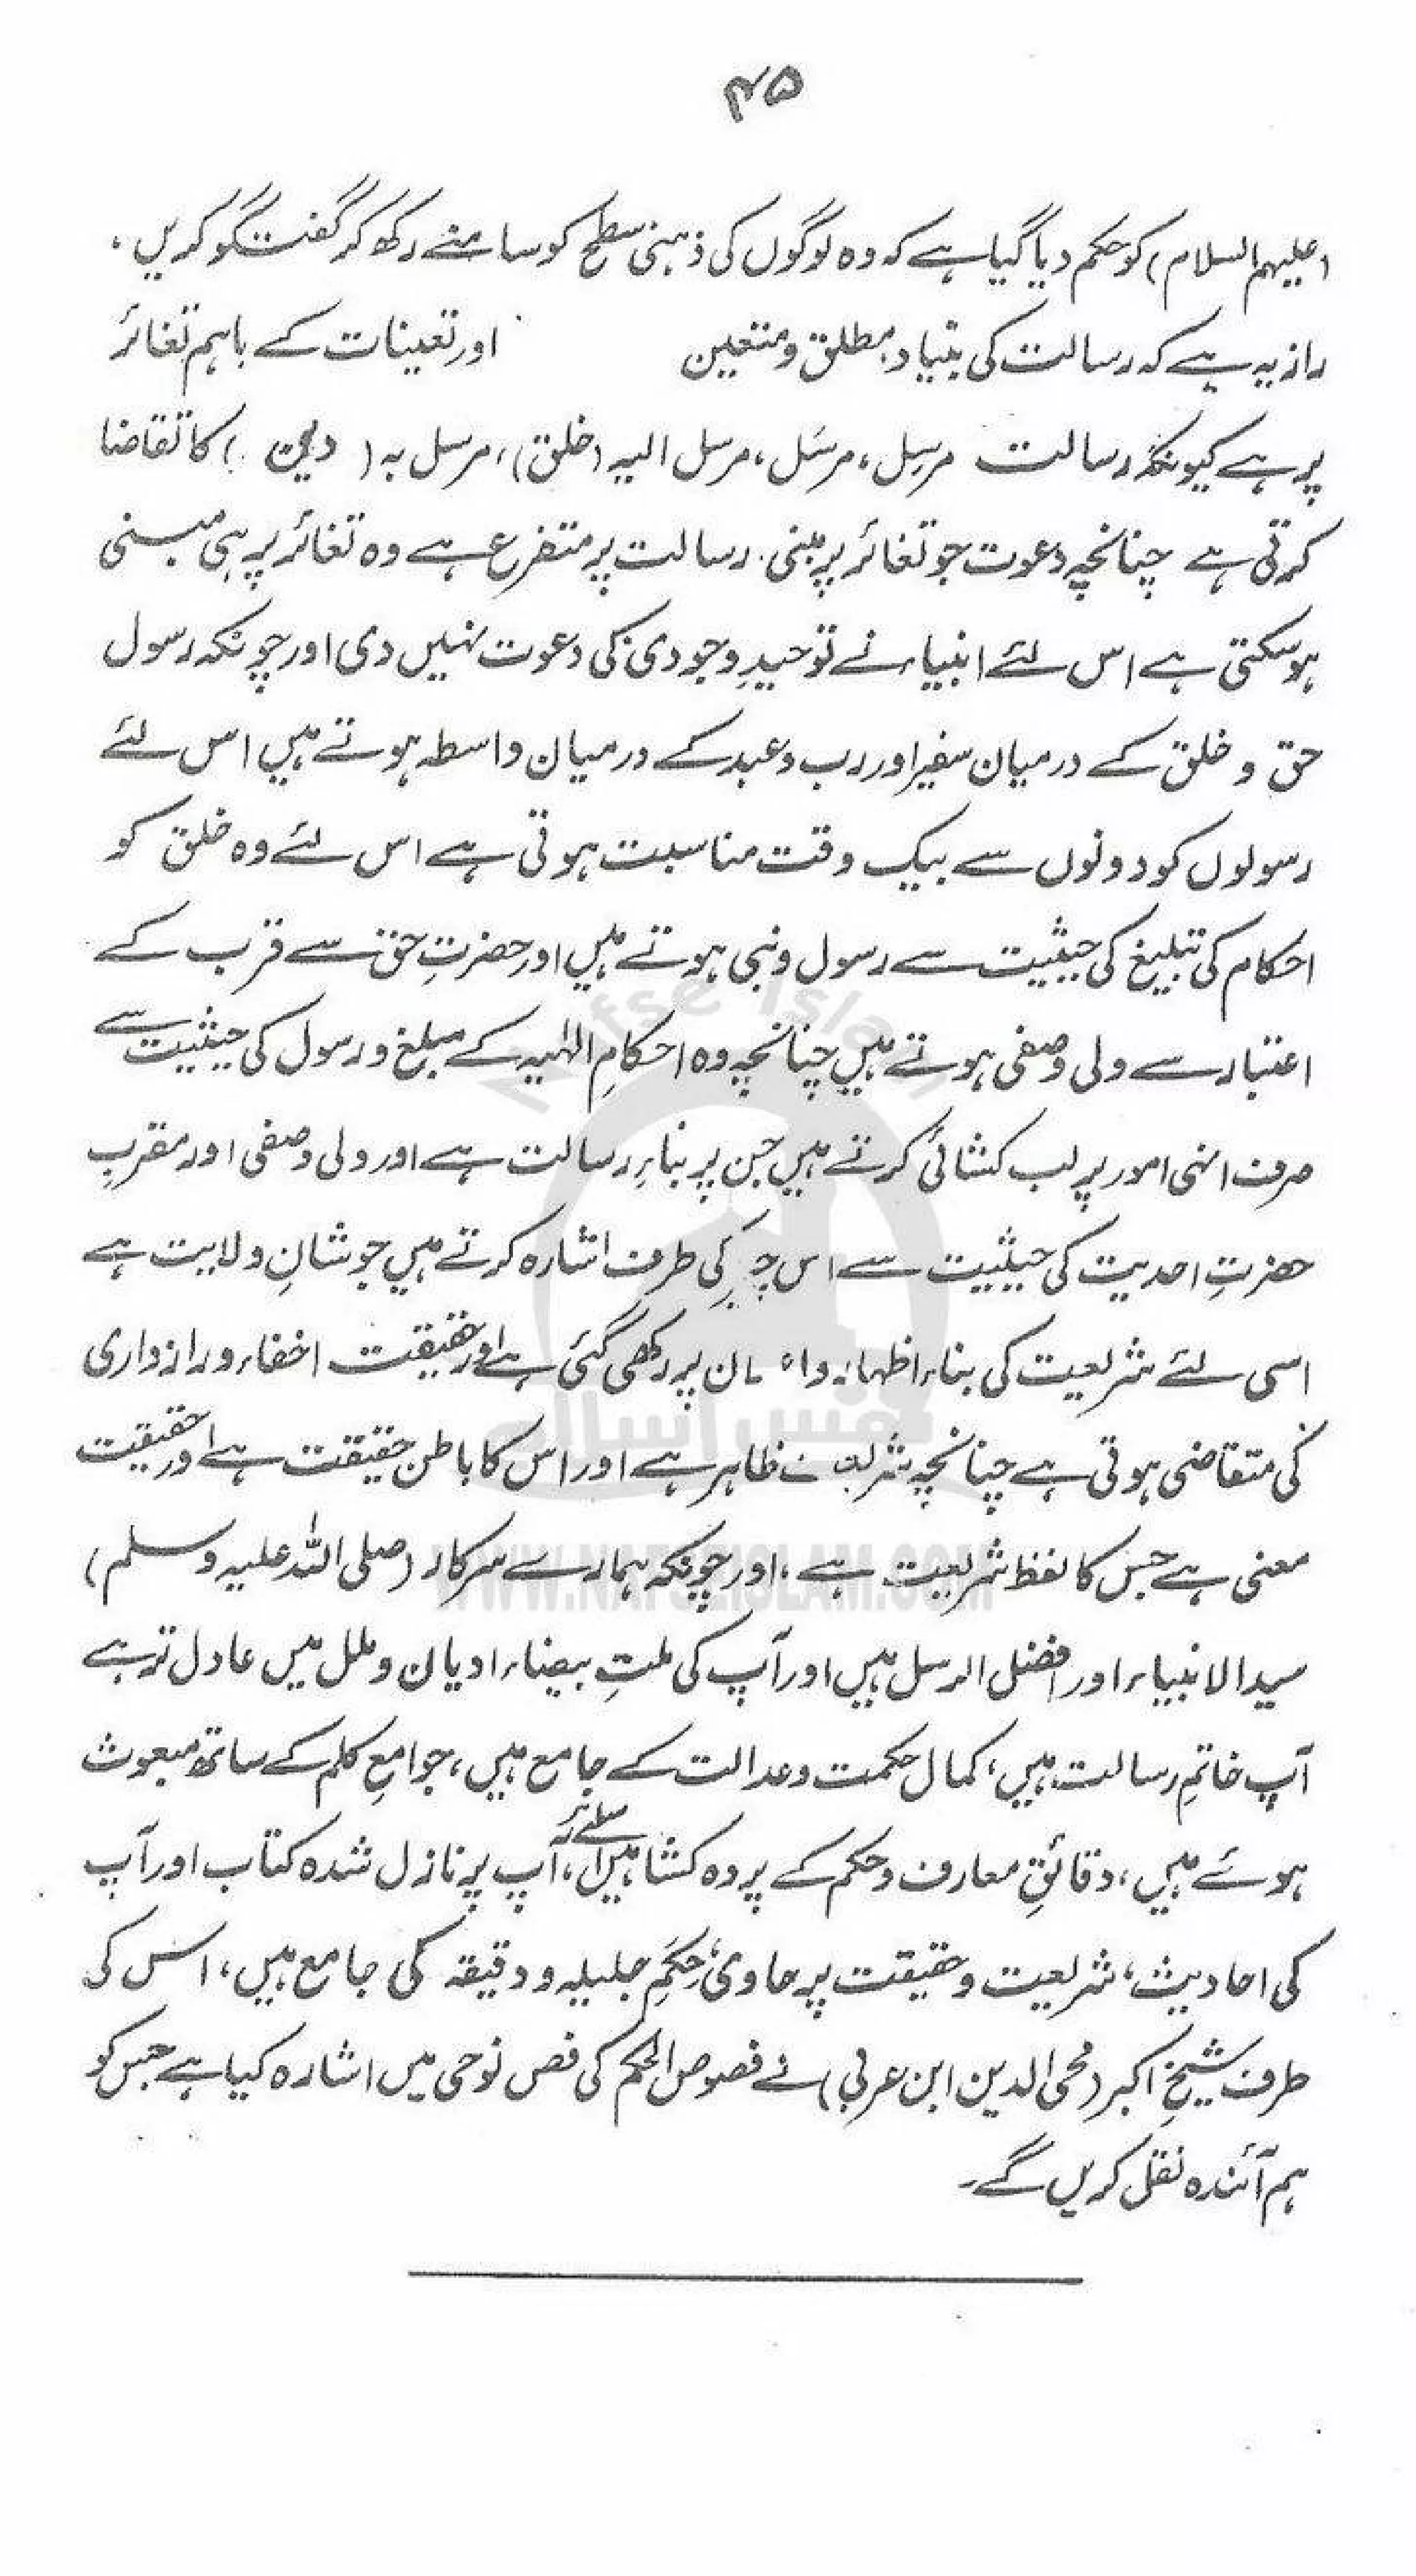 ۴۵
(علیہم السلام) کو حکم دیا گیا ہے کہ وہ لوگوں کی ذہنی سطح کو سامنے رکھ کر گفتگو کریں،
راز یہ ہے کہ رسالت کی بنیاد مطلق و متعین اور تعینات کے باہم تغائر
پر ہے کیونکہ رسالت مرسِل، مرسَل، مرسل الیہ (خلق)، مرسل بہ (دین) کا تقاضا
کرتی ہے چنانچہ دعوت جو تغائر پر مبنی رسالت پر متفرع ہے وہ تغائر پر ہی مبنی
ہوسکتی ہے اس لئے انبیاء نے توحیدِ وجودی کی دعوت نہیں دی اور چونکہ رسول
حق و خلق کے درمیان سفیر اور رب و عبد کے درمیان واسطہ ہوتے ہیں اس لئے
رسولوں کو دونوں سے بیک وقت مناسبت ہوتی ہے اس لئے وہ خلق کو
احکام کی تبلیغ کی حیثیت سے رسول و نبی ہوتے ہیں اور حضرتِ حق سے قرب کے
اعتبار سے ولی و صفی ہوتے ہیں چنانچہ وہ احکامِ الٰہیہ کے مبلغ و رسول کی حیثیت سے
صرف انہی امور پر لب کشائی کرتے ہیں جن پر بناءِ رسالت ہے اور ولی و صفی اور مقربِ
حضرتِ احدیت کی حیثیت سے اس کی طرف اشارہ کرتے ہیں جو شانِ ولایت ہے
اسی لئے شریعت کی بناء اظہار و پر رکھی گئی ہے اور حقیقت اخفاء و رازداری
کی متقاضی ہوتی ہے چنانچہ شریعت ظاہر ہے اور اس کا باطن حقیقت ہے اور حقیقت
معنی ہے جس کا لفظ شریعت ہے، اور چونکہ ہمارے سرکار (صلی اللہ علیہ وسلم)
سید الانبیاء اور افضل الرسل ہیں اور آپ کی ملتِ بیضاء ادیان و ملل میں عادل تر ہے
آپ خاتمِ رسالت ہیں، کمال حکمت و عدالت کے جامع ہیں، جوامعِ کلم کے ساتھ مبعوث
ہوئے ہیں، دقائقِ معارف و حکم کے پردہ کشا ہیں، آپ پر نازل شدہ کتاب اور آپ
کی احادیث، شریعت و حقیقت پر حاوی، حِکَمِ جلیلہ و دقیقہ کی جامع ہیں، اس کی
طرف شیخِ اکبر (محی الدین ابن عربی) نے فصوص الحکم کی فص نوحی میں اشارہ کیا ہے جس کو
ہم آئندہ نقل کریں گے۔
Nafse Islam
نفس اسلام
WWW.NAFSEISLAM.COM